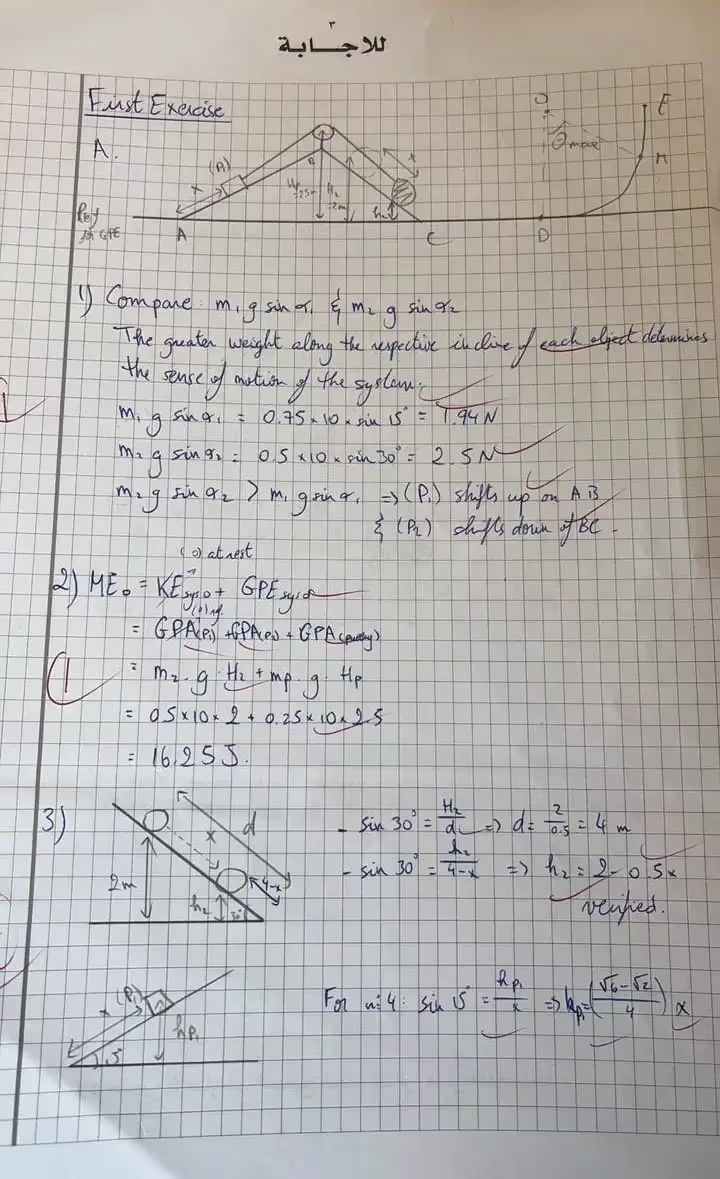 ٣
للاجابة
First Exercise
A.
(P1)
x
B
Hp
=2.5m
H2
2m
x
h2
O
E
θmax
M
Ref
for GPE
A
C
D
1) Compare: m1 g sin α1 & m2 g sin α2
The greater weight along the respective incline of each object determines
the sense of motion of the system.
m1 g sin α1 = 0.75 × 10 × sin 15° = 1.94 N
m2 g sin α2 = 0.5 × 10 × sin 30° = 2.5 N
m2 g sin α2 > m1 g sin α1 => (P1) shifts up on AB
& (P2) shifts down of BC.
(0) at rest
2) ME0 = KEsys0 + GPEsys0
(0) ref.
= GPA(P1) + GPA(P2) + GPA(pulley)
= m2 . g . H2 + mp . g . Hp
= 0.5 × 10 × 2 + 0.25 × 10 × 2.5
= 16.25 J.
1
3)
d
x
2m
h2
4-x
30°
- sin 30° = H2/d => d = 2/0.5 = 4 m
- sin 30° = h2/4-x => h2 = 2 - 0.5x
verified.
x
(P1)
hP1
15°
For n: 4: sin 15° = hP1/x => hP1 = (√6-√2/4) x